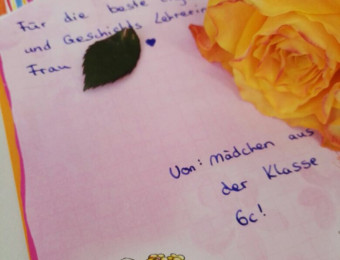 Für die beste
und Geschichts Lehrerin
Frau
Von: Mädchen aus
der Klasse
6c!